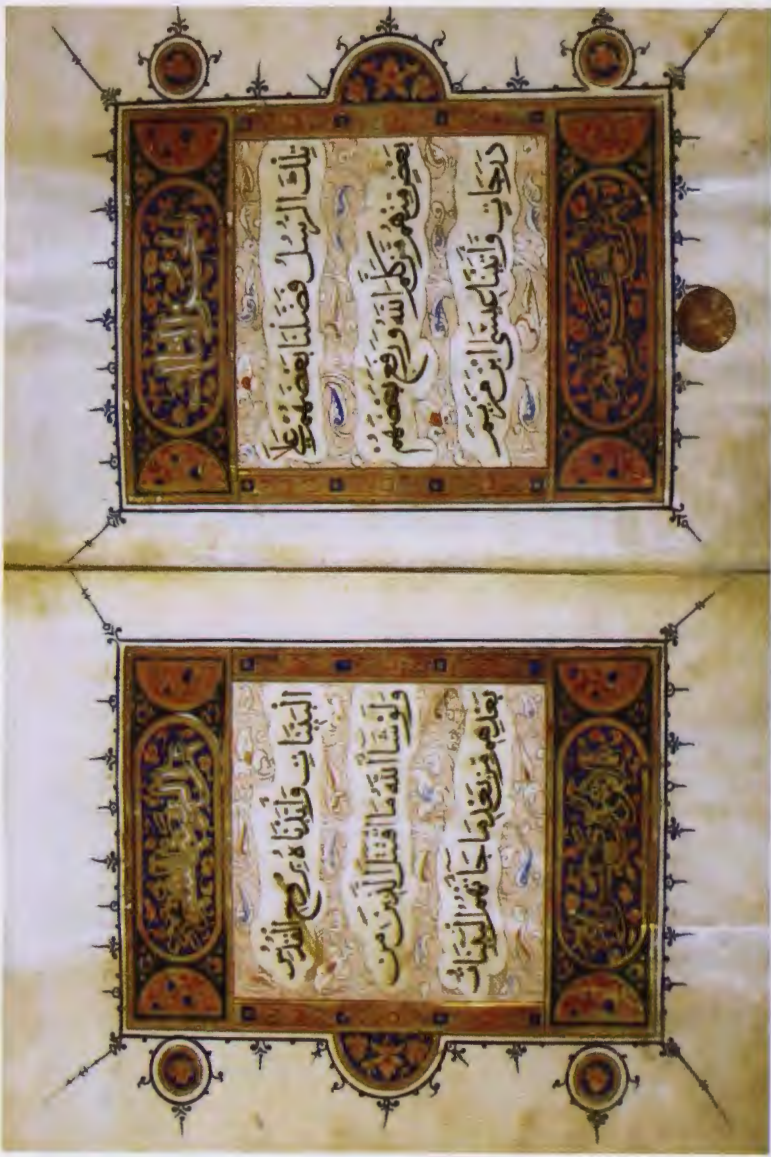 الجزء الثالث
تِلْكَ الرُّسُلُ فَضَّلْنَا بَعْضَهُمْ عَلَى
بَعْضٍ مِنْهُمْ مَنْ كَلَّمَ اللهُ وَرَفَعَ بَعْضَهُمْ
دَرَجَاتٍ وَآتَيْنَا عِيسَى ابْنَ مَرْيَمَ
الْبَيِّنَاتِ وَأَيَّدْنَاهُ بِرُوحِ الْقُدُسِ
وَلَوْ شَاءَ اللهُ مَا اقْتَتَلَ الَّذِينَ مِنْ
بَعْدِهِمْ مِنْ بَعْدِ مَا جَاءَتْهُمُ الْبَيِّنَاتُ